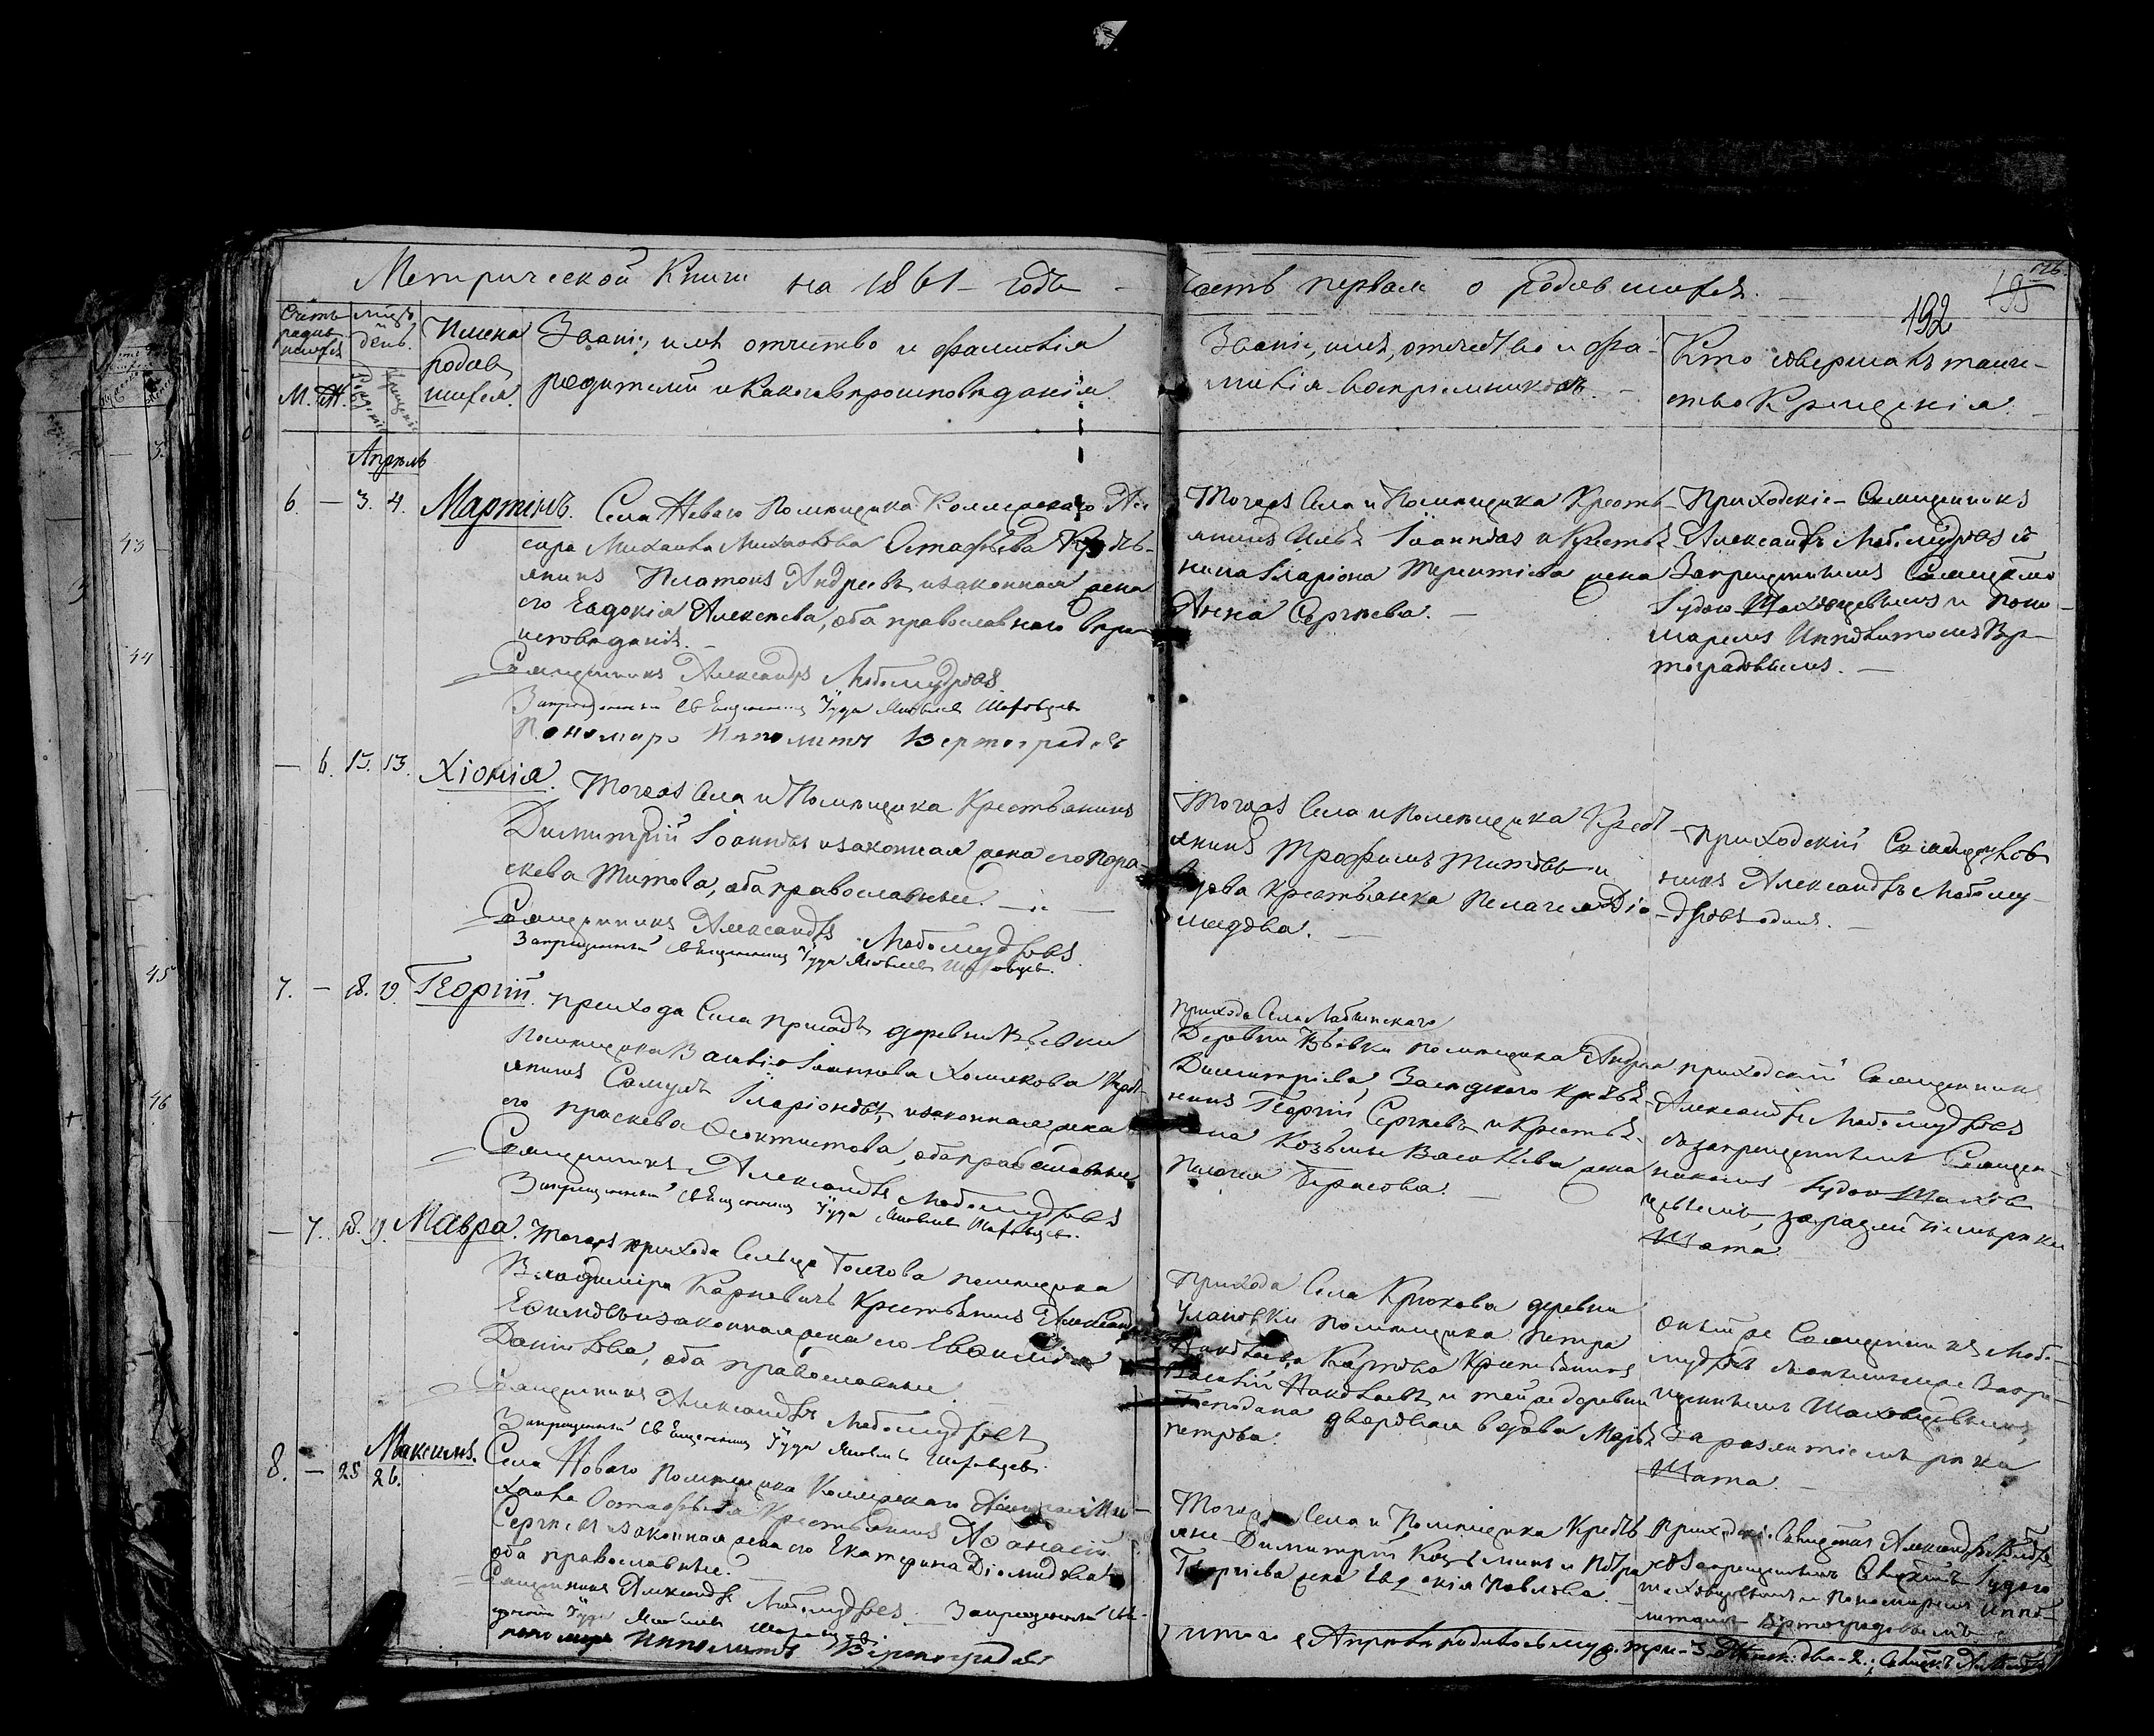 Метрической Книги на 1861 годъ
Часть первая о родившихся.
126.
195
192
Счетъ родившихся
М. Ж.
Мѣсяцъ день.
Рожденія
Крещенія
Имена родившихся.
Званіе, имя отчество и фамилія
родителей и какого вѣроисповѣданія.
Званіе, имя, отчество и фа-
милія воспріемниковъ.
Кто совершалъ таин-
ство Крещенія
Апрѣль
6. — 3. 4. Мартинъ.
Села Новаго Помѣщика Коллежскаго Ас-
сора Михаила Михайлова Остафьева Крестъ-
янинъ Платонъ Андреевъ и законная жена
его Евдокія Алексѣева, оба православнаго вѣро-
исповѣданія.
Священникъ Александръ Любомудровъ
Запрещенный Священникъ Іуда Яковлев Шаховцевъ
Пономарь Ипполитъ Вертоградовъ
Тогожъ Села и Помѣщика Кресть-
янинъ Илья Іоанновъ и Крестья-
нина Иларіона Терентіева жена
Анна Сергѣева.
Приходскіе Священникъ
Александръ Любомудровъ съ
Запрещеннымъ Священикомъ
Іудою Шаховцевымъ и Поно-
маремъ Ипполитомъ Вер-
тоградовымъ.
— 6. 13. 13. Хіонія.
Тогожъ Села и Помѣщика Крестьянинъ
Димитрій Іоанновъ и законная жена его Пара-
скева Титова, оба православные.
Священникъ Александръ Любомудровъ.
Запрещенный Священникъ Іуда Яковлев Шаховцевъ.
Тогожъ Села и Помѣщика Крест-
янинъ Трофимъ Титовъ и
вдова крестьянка Пелагея Діо-
мидова.
Приходскій Священ-
никъ Александръ Любому-
дровъ одинъ.
7. — 18. 19. Георгій.
Прихода Села деревни Кѣевки
Помѣщика Василія Іоаннова Хомякова Крест-
янинъ Самуилъ Иларіоновъ, и законная жена
его Праскева Ѳеоктистова, оба православные
Священникъ Александръ Любомудровъ
Запрещенный Священникъ Іуда Яковлев Шаховцевъ.
Прихода Села Лабынскаго
Деревни помѣщика Андрея
Димитріева, Засядкаго крестья-
нинъ Георгій Сергѣевъ и Крестья-
нина Козьмы Васильева жена
Пелагия Борисова.
приходскій Священникъ
Александръ Любомудровъ
съ запрещеннымъ Священ-
никомъ Іудою Шахов-
цевымъ, за разлитіемъ рѣки
Шата
— 7. 18. 19. Мавра.
Тогожъ прихода Сельца Голгова помѣщика
Владиміра Карневичъ Крестьянинъ Александръ
Ефимовъ и законная жена его Евфимія
Данилова, оба православные
Священникъ Александръ Любомудровъ
Запрещенный Священникъ Іуда Яковлевъ Шаховцевъ.
Прихода Села Крюкова деревни
Улановки помѣщика Петра
Николаева Карпова Крестьянинъ
Василій Николаевъ, и той же деревни
Господина дворовая вдова Марья
Петрова.
онъ же Священникъ Любо-
мудровъ съ тѣмъ же Запре-
щеннымъ Шаховцевымъ,
За разлитіемъ рѣки
Шата.
8. — 25 26. Максимъ.
Села Новаго Помѣщика Коллежскаго Ассесора Ми-
хаила Остафьева Крестьянинъ Аѳанасій
Сергѣевъ и законная жена его Екатерина Діомидова
оба православные.
Священникъ Александръ Любомудровъ. Запрещенный Свя-
щенникъ Іуда Яковлевъ Шаховцевъ
пономарь Ипполитъ Вертоградовъ
Тогожъ Села и Помѣщика Кресть-
яне Димитрій Козьминъ и Петра
Георгіева жена Евдокія Павлова.
Приходскій Священникъ Александръ Любомудровъ
съ Запрещеннымъ Священникомъ Іудою
Шаховцевымъ и Пономаремъ Иппо-
литомъ Вертоградовымъ
итого въ Апрѣлѣ родилось муж. три-3. Женск. два-2.